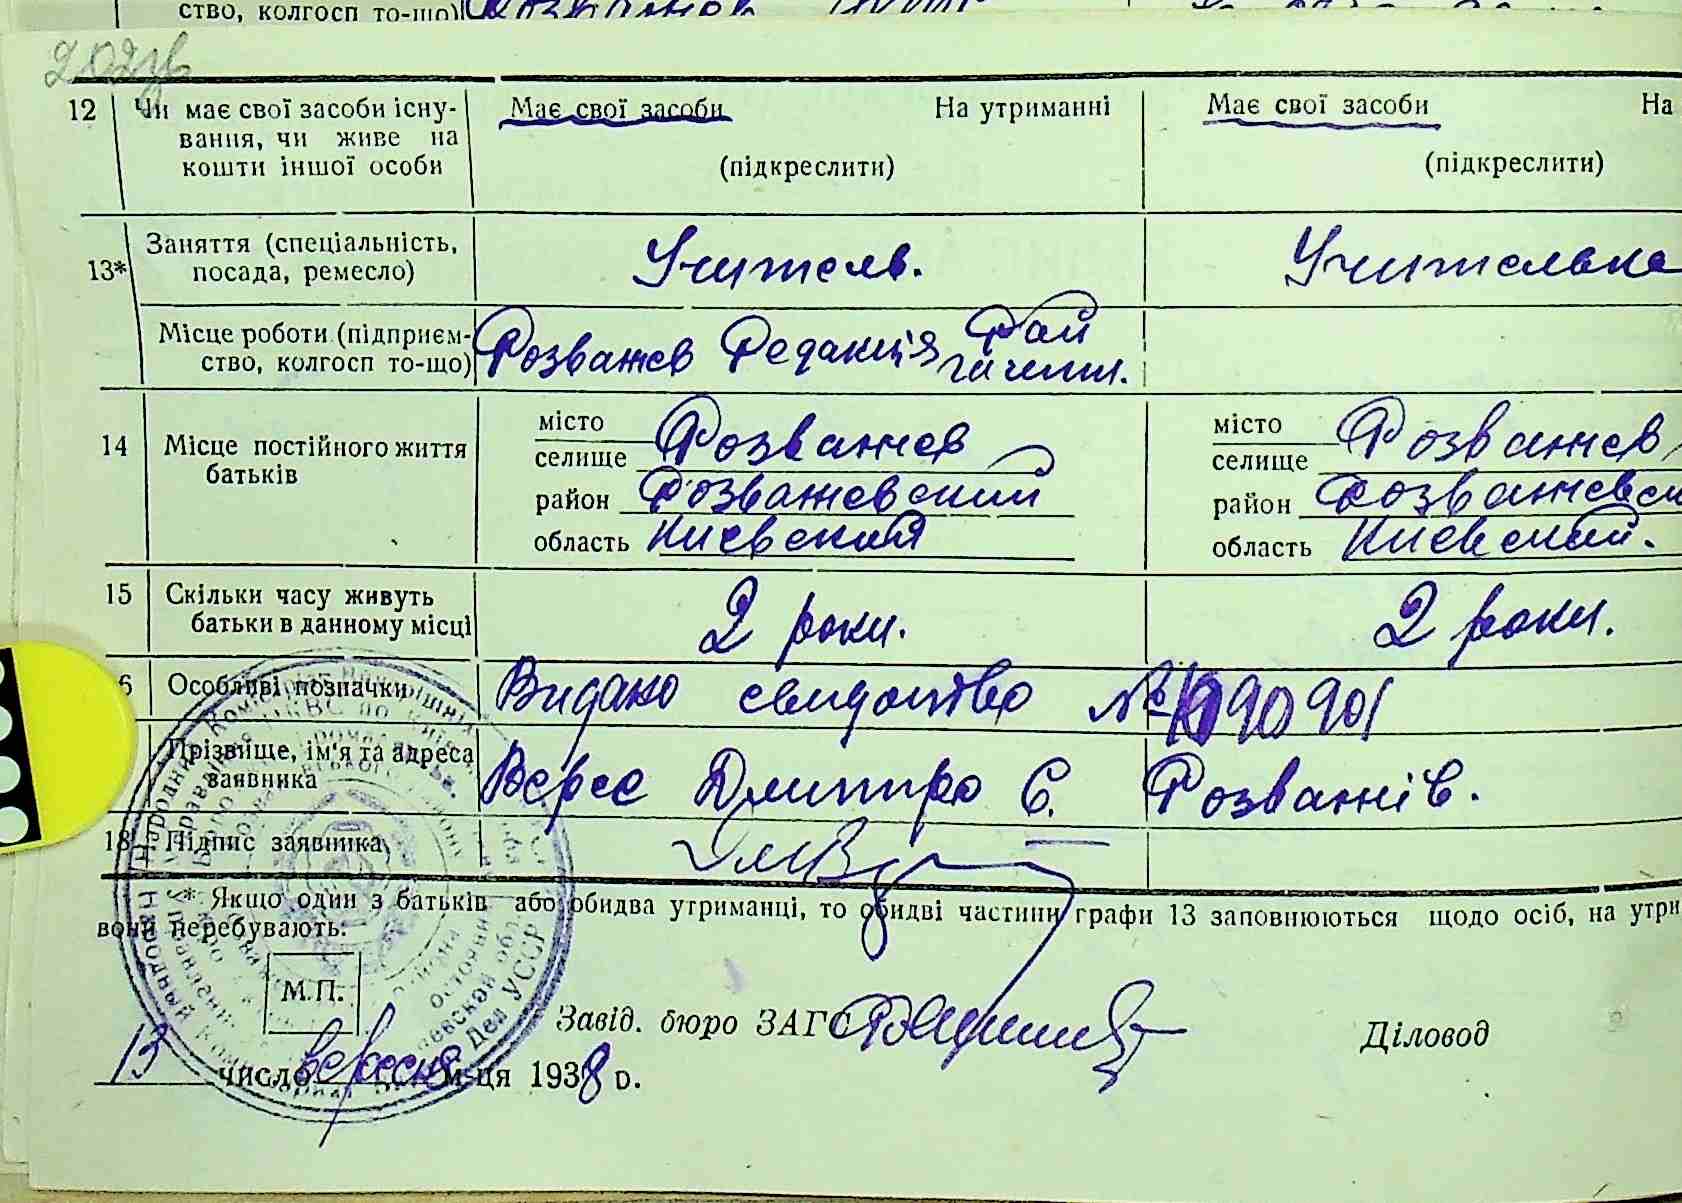 ство, колгосп то-що)
202зв
12 Чи має свої засоби існу- Має свої засоби На утриманні Має свої засоби На
вання, чи живе на
кошти іншої особи (підкреслити) (підкреслити)
13* Заняття (спеціальність, Учитель. Учителька
посада, ремесло)
Місце роботи (підприєм- Розважев Редакція Рай
ство, колгосп то-що)
місто Розважев місто Розважев
14 Місце постійного життя селище селище
батьків район Розважевский район Розважевск
область Киевский область Киевский.
15 Скільки часу живуть 2 роки. 2 роки.
батьки в данному місці
6 Особливі позначки Видано свидотво № 090901
Прізвище, ім'я та адреса Верес Дмитро Є. Розважів.
заявника
18 Підпис заявника
* Якщо один з батьків або обидва утриманці, то обидві частини графи 13 заповнюються щодо осіб, на утри
вони перебувають:
М.П.
Завід. бюро ЗАГС Діловод
13 число вересня м-ця 1938 р.